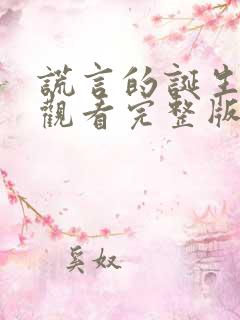 謊言的誕生
觀看完整版
奚奴